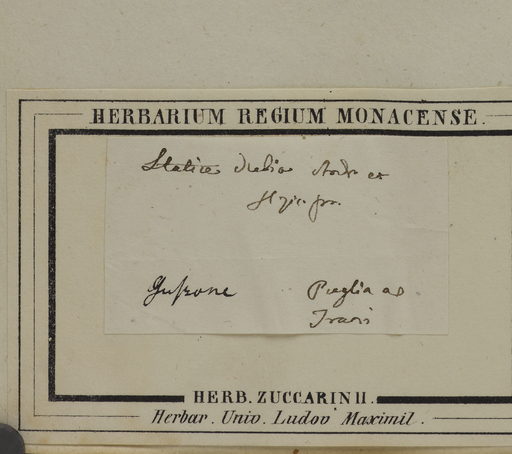 HERBARIUM REGIUM MONACENSE.
Statice dubia Andr. ex
Guſsone Puglia a
Trani
HERB. ZUCCARINII.
Herbar. Univ. Ludov Maximil.